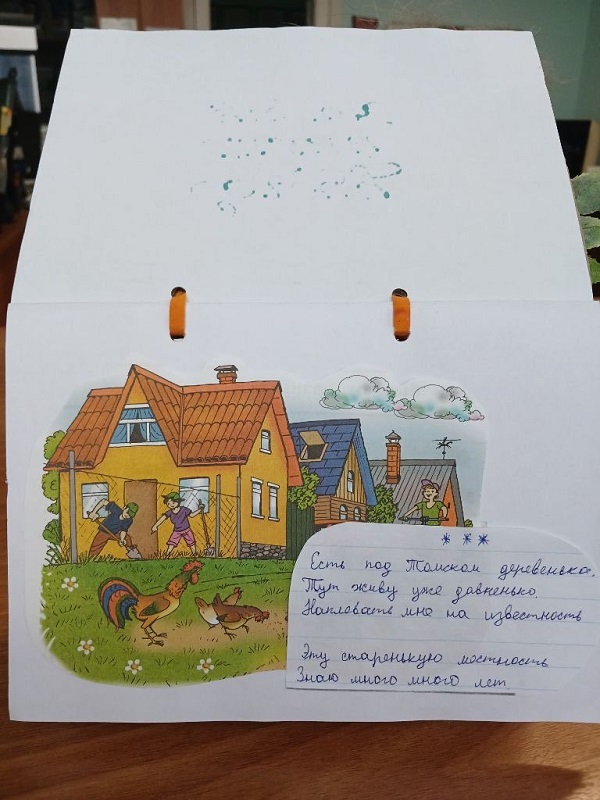 * * *
Есть под Томском деревенька,
Тут живу уже давненько.
Наплевать мне на известность
Эту старенькую мостность
Знаю много много лет.